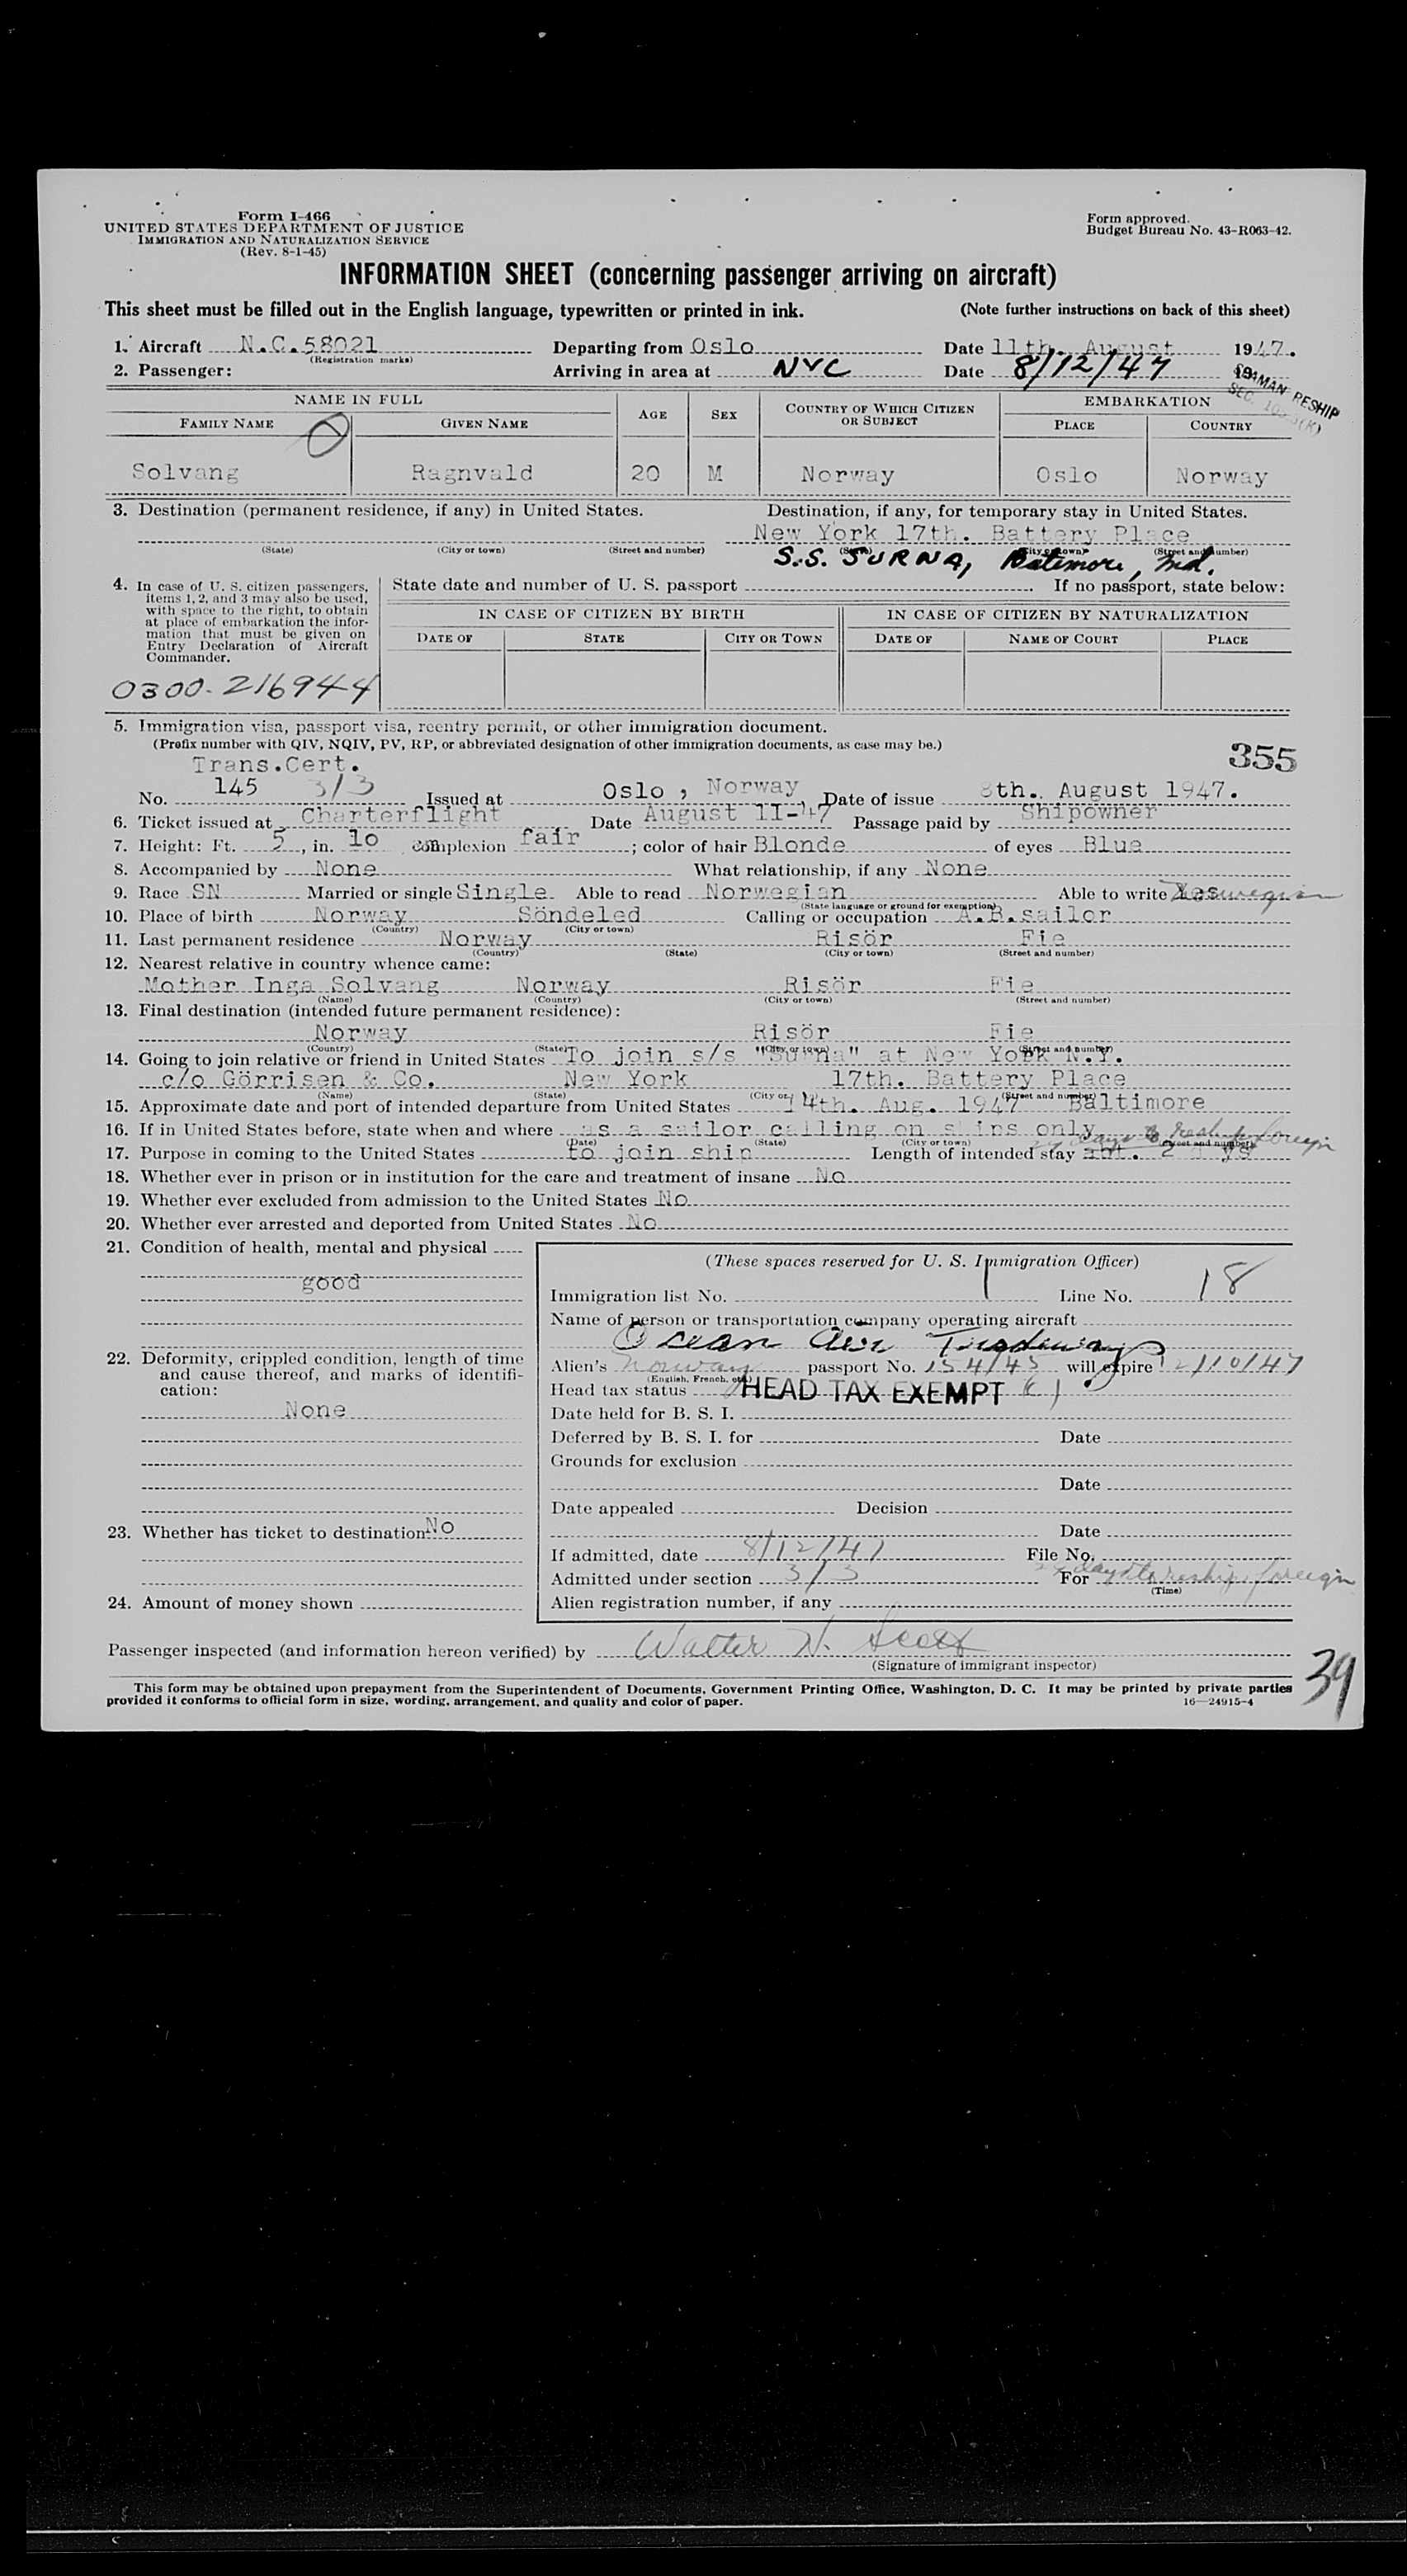 Form I-466
UNITED STATES DEPARTMENT OF JUSTICE
IMMIGRATION AND NATURALIZATION SERVICE
(Rev. 8-1-45)
Form approved.
Budget Bureau No. 43-R063-42.
INFORMATION SHEET (concerning passenger arriving on aircraft)
This sheet must be filled out in the English language, typewritten or printed in ink. (Note further instructions on back of this sheet)
1. Aircraft N.C.58021 Departing from Oslo Date 11th. August 1947.
(Registration marks)
2. Passenger: Arriving in area at NYC Date 8/12/47 19
SEAMAN RESHIP
SEC.
NAME IN FULL AGE SEX COUNTRY OF WHICH CITIZEN OR SUBJECT EMBARKATION
FAMILY NAME GIVEN NAME PLACE COUNTRY
Solvang Ragnvald 20 M Norway Oslo Norway
3. Destination (permanent residence, if any) in United States. Destination, if any, for temporary stay in United States.
New York 17th. Battery Place
(State) (City or town) (Street and number) (State) (City or town) (Street and number)
S.S. SURNA, Batimore, Md.
4. In case of U. S. citizen passengers, items 1, 2, and 3 may also be used, with space to the right, to obtain at place of embarkation the information that must be given on Entry Declaration of Aircraft Commander.
State date and number of U. S. passport If no passport, state below:
IN CASE OF CITIZEN BY BIRTH IN CASE OF CITIZEN BY NATURALIZATION
DATE OF STATE CITY OR TOWN DATE OF NAME OF COURT PLACE
0300-216944
5. Immigration visa, passport visa, reentry permit, or other immigration document.
(Prefix number with QIV, NQIV, PV, RP, or abbreviated designation of other immigration documents, as case may be.)
355
Trans.Cert.
No. 145 3/3 Issued at Oslo, Norway Date of issue 8th. August 1947.
6. Ticket issued at Charterflight Date August II-47 Passage paid by Shipowner
7. Height: Ft. 5, in. 10 complexion fair; color of hair Blonde of eyes Blue
8. Accompanied by None What relationship, if any None
9. Race SN Married or single Single Able to read Norwegian Able to write Yes Norwegian
(State language or ground for exemption)
10. Place of birth Norway Söndeled Calling or occupation A.B.sailor
(Country) (City or town)
11. Last permanent residence Norway Risör Fie
(Country) (State) (City or town) (Street and number)
12. Nearest relative in country whence came:
Mother Inga Solvang Norway Risör Fie
(Name) (Country) (City or town) (Street and number)
13. Final destination (intended future permanent residence):
Norway Risör Fie
(Country) (State) (City or town) (Street and number)
14. Going to join relative or friend in United States To join s/s "Surna" at New York N.Y.
c/o Görrisen & Co. New York 17th. Battery Place
(Name) (State) (City or town) (Street and number)
15. Approximate date and port of intended departure from United States 14th. Aug. 1947 Baltimore
16. If in United States before, state when and where as a sailor calling on ships only
(Date) (State) (City or town) (Street and number)
days to reship foreign
17. Purpose in coming to the United States to join ship Length of intended stay abt. 2 days
18. Whether ever in prison or in institution for the care and treatment of insane No
19. Whether ever excluded from admission to the United States No
20. Whether ever arrested and deported from United States No
21. Condition of health, mental and physical
good
22. Deformity, crippled condition, length of time and cause thereof, and marks of identification:
None
23. Whether has ticket to destination No
24. Amount of money shown
(These spaces reserved for U. S. Immigration Officer)
Immigration list No. 1 Line No. 18
Name of person or transportation company operating aircraft
Ocean Air Tradeways
Alien's Norway passport No. 154/45 will expire 12/10/47
(English, French, etc.)
Head tax status HEAD TAX EXEMPT
Date held for B. S. I.
Deferred by B. S. I. for Date
Grounds for exclusion
Date
Date appealed Decision
Date
If admitted, date 8/12/47 File No.
Admitted under section 3/3 For days to reship foreign
(Time)
Alien registration number, if any
Passenger inspected (and information hereon verified) by Walter N. Scott
(Signature of immigrant inspector)
39
This form may be obtained upon prepayment from the Superintendent of Documents, Government Printing Office, Washington, D. C. It may be printed by private parties
provided it conforms to official form in size, wording, arrangement, and quality and color of paper. 16—24915-4